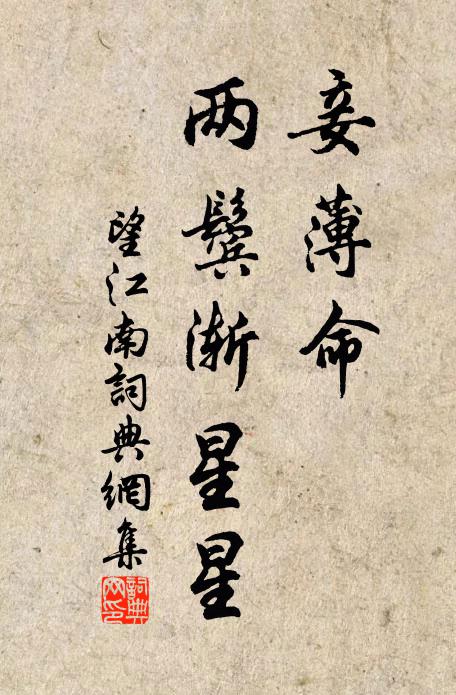 妾薄命
两鬓渐星星
望江南詞典網集
詞典网印